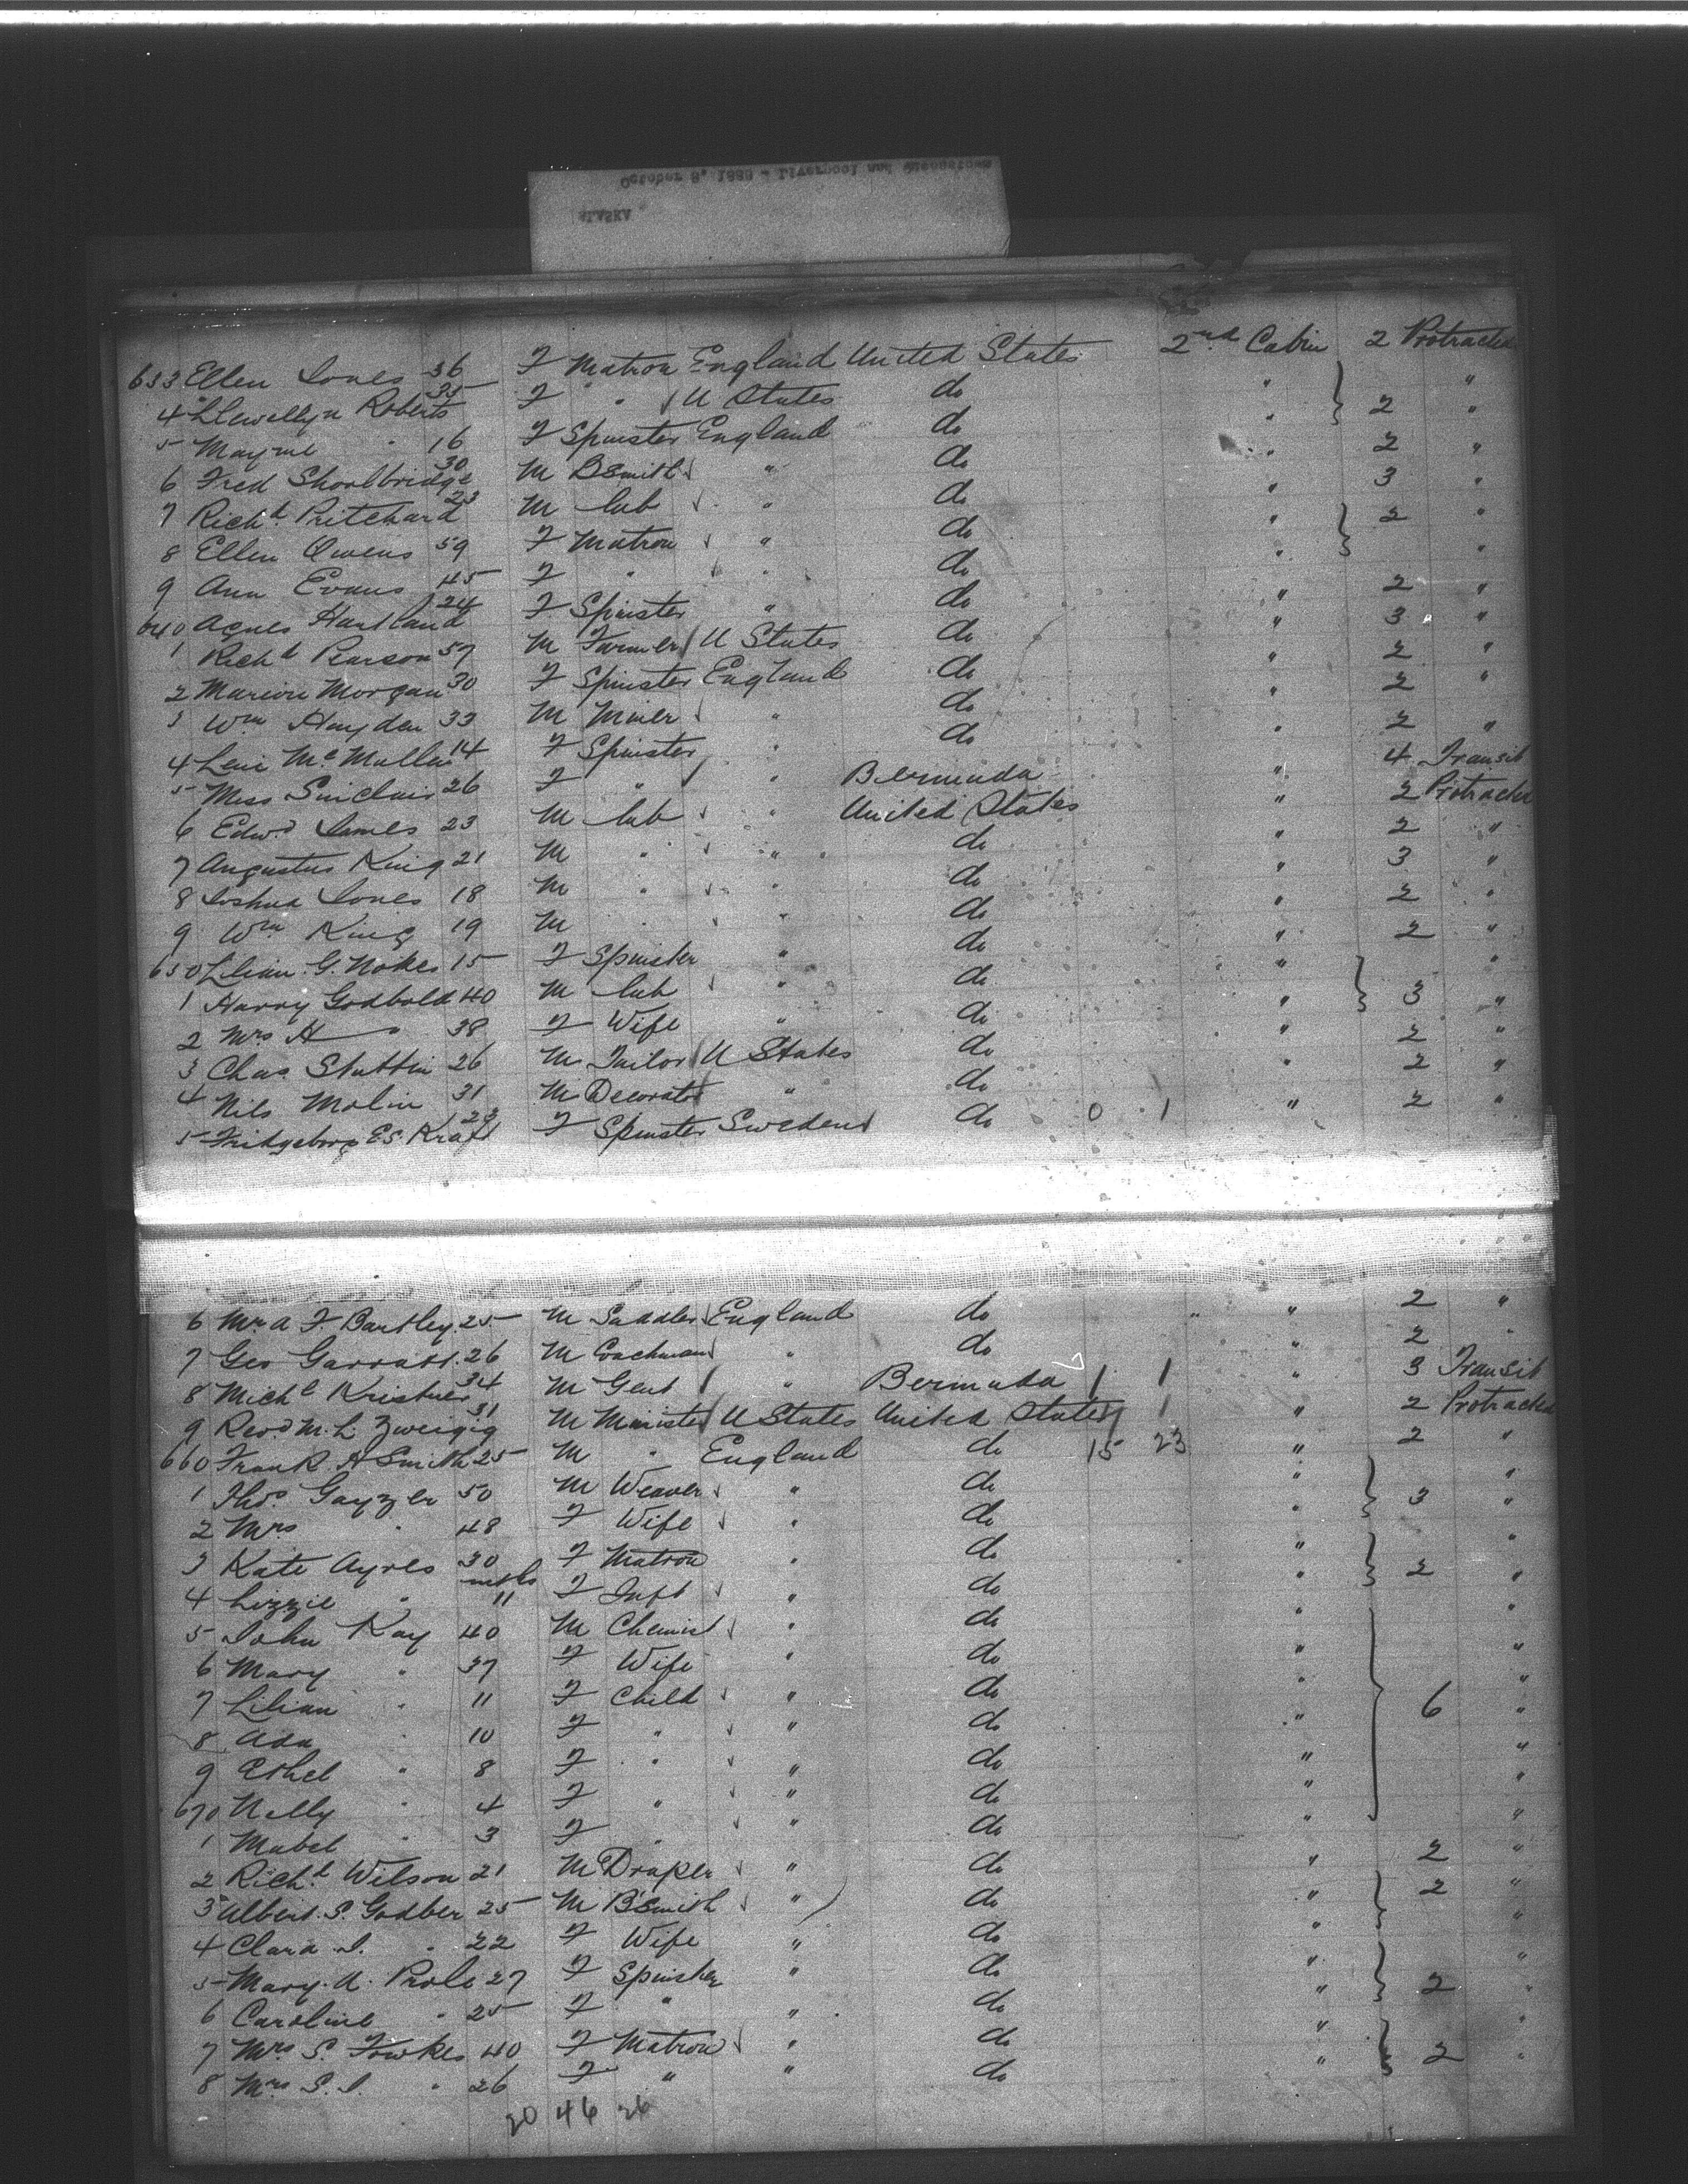 October 8, 1888 - Liverpool and Queenstown
ALASKA
633 Ellen Jones 36 F Matron England United States 2nd Cabin 2 Protracted
4 Llewellyn Roberts 35 F " U States do " 2 "
5 Mayme " 16 F Spinster England do " "
6 Fred Shoolbridge 30 M BSmith " do " 2 "
7 Richd Pritchard 23 M Lab " do " 3 "
8 Ellen Owens 59 F Matron " do " 2 "
9 Ann Evans 45 F " " do " "
640 Agnes Hartland 24 F Spinster " do " 2 "
1 Richd Pearson 57 M Farmer U States do " 3 "
2 Marion Morgan 30 F Spinster England do " 2 "
3 Wm Hayden 33 M Miner " do " 2 "
4 Lena McMullen 14 F Spinster " do " 2 "
5 Miss Sinclair 26 F " " Bermuda " 4 Transit
6 Edwd James 23 M Lab " United States " 2 Protracted
7 Augustus King 21 M " " do " 2 "
8 Joshua Jones 18 M " " do " 3 "
9 Wm King 19 M " " do " 2 "
650 Lilian G. Nokes 15 F Spinster " do " 2 "
1 Harry Godbold 40 M Lab " do " 3 "
2 Mrs H " 38 F Wife " do " "
3 Chas Stuttin 26 M Tailor U States do " 2 "
4 Nils Molin 31 M Decorator " do " 2 "
5 Fridgeborg E.S. Kraft 23 F Spinster Sweden do 0 1 " 2 "
6 Mr A F. Bartley 25 M Saddler England do " " 2 "
7 Geo Garratt 26 M Coachman " do " 2 "
8 Michl Kristner 34 M Gent " Bermuda 1 1 " 3 Transit
9 Revd M. L. Zweigig 31 M Minister U States United States 1 1 " 2 Protracted
660 Frank A Smith 25 M " England do 15 23 " 2 "
1 Thos Gayzer 50 M Weaver " do " 3 "
2 Mrs " 48 F Wife " do " "
3 Kate Ayres 30 F Matron " do " 2 "
4 Lizzie " mths 11 F Inft " do " "
5 John Kay 40 M Chemist " do " "
6 Mary " 37 F Wife " do " "
7 Lilian " 11 F Child " do " 6 "
8 Ada " 10 F " " do " "
9 Ethel " 8 F " " do " "
670 Nelly " 4 F " " do " "
1 Mabel " 3 F " " do " "
2 Richd Wilson 21 M Draper " do " 2 "
3 Albert S. Godber 25 M BSmith " do " 2 "
4 Clara J. " 22 F Wife " do " "
5 Mary A. Prole 27 F Spinster " do " 2 "
6 Caroline " 25 F " " do " "
7 Mrs S. Fowkes 40 F Matron " do " 2 "
8 Mrs S. J. " 26 F " " do " "
20 46 26